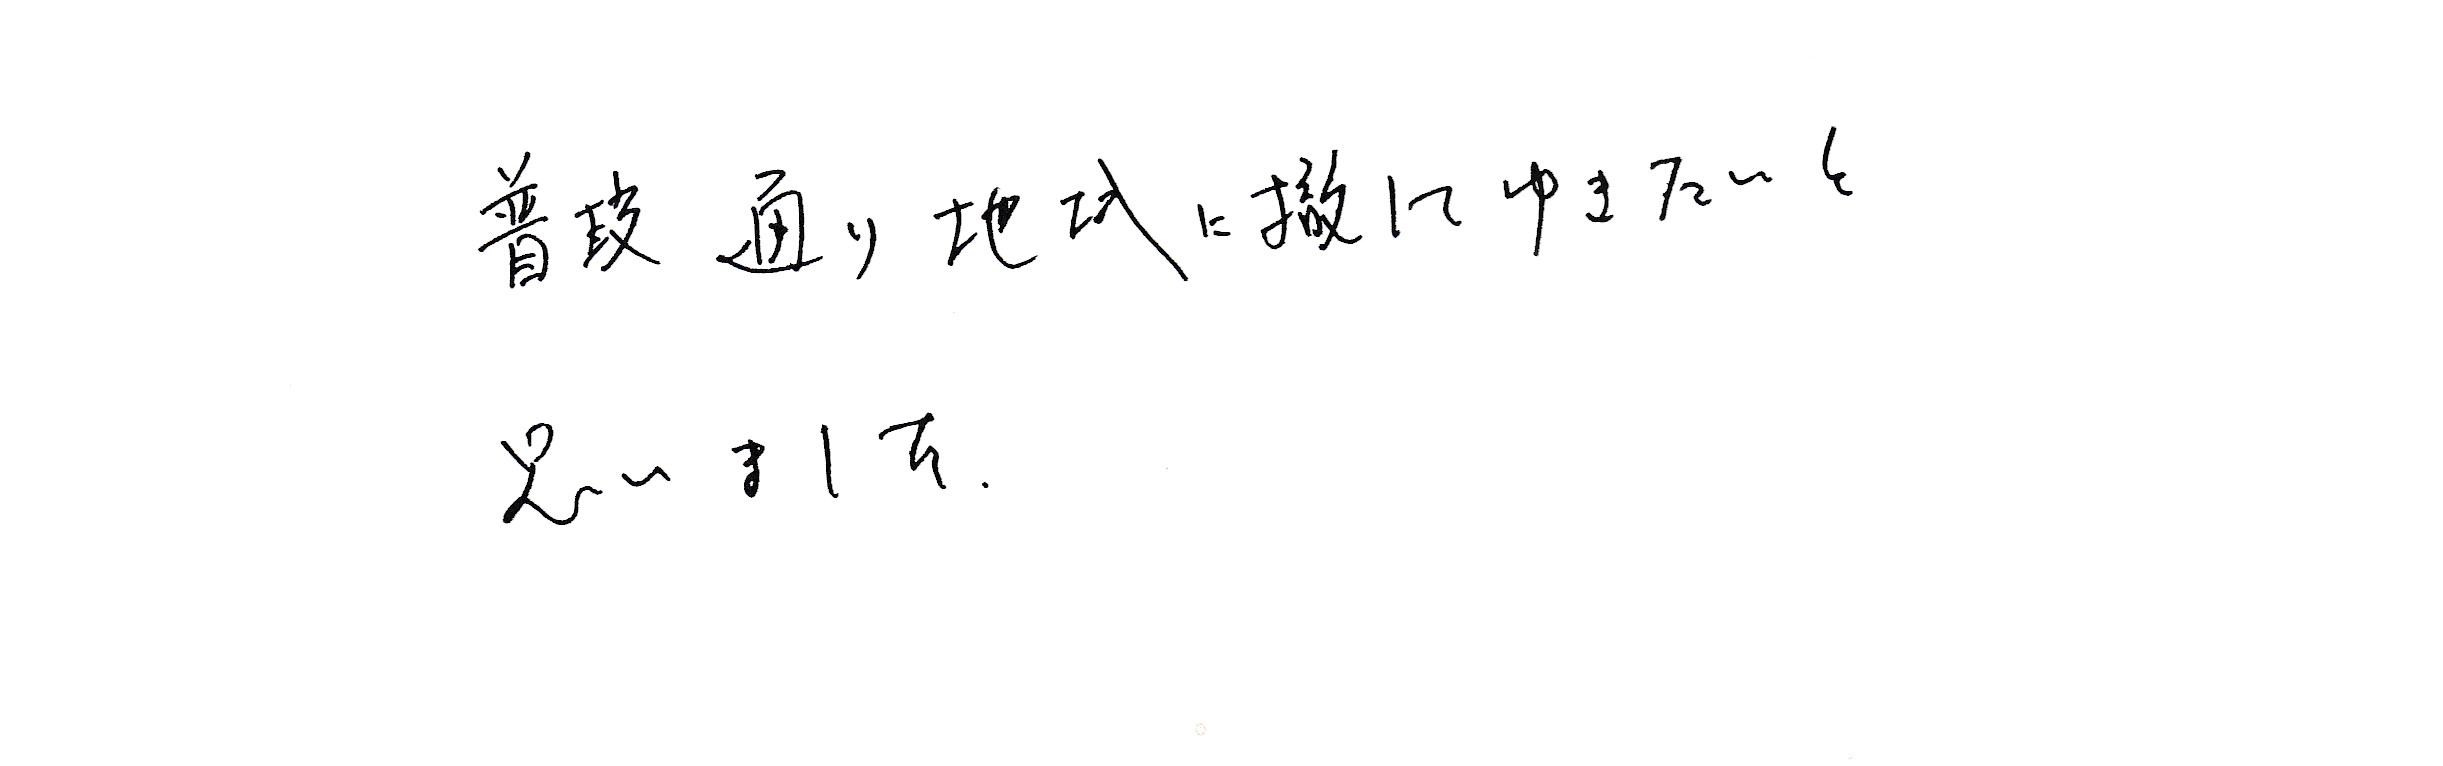 普段通り地域に撤にゆきたいと
思いました.